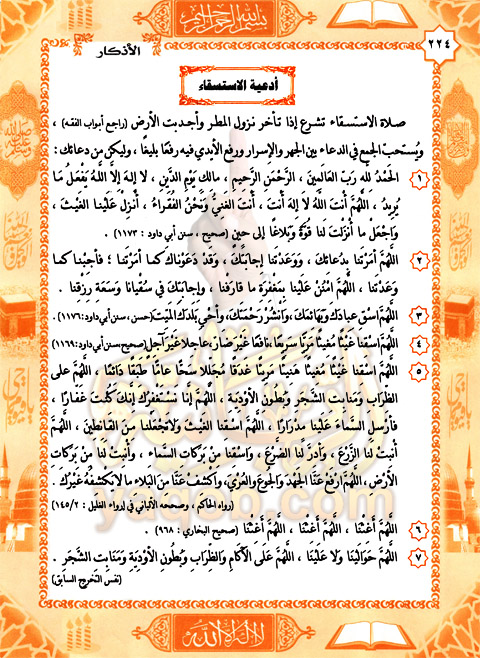 بسم الله الرحمن الرحيم
الأذكار
٢٢٤
أدعية الاستسقاء
صلاة الاستسقاء تشرع إذا تأخر نزول المطر وأجدبت الأرض (راجع أبواب الفقه) ،
ويُستحبّ الجمع في الدعاء بين الجهر والإسرار ورفع الأيدي فيه رفعًا بليغًا ، وليكن من دعائك :
١ الحَمْدُ للهِ رَبِّ العَالَمِينَ ، الرَّحْمَنِ الرَّحِيمِ ، مَالِكِ يَوْمِ الدِّينِ ، لا إِلَهَ إِلَّا اللَّهُ يَفْعَلُ مَا
يُرِيدُ ، اللَّهُمَّ أَنْتَ اللَّهُ لَا إِلَهَ أَنْتَ ، أَنْتَ الغَنِيُّ وَنَحْنُ الفُقَرَاءُ ، أَنْزِلْ عَلَيْنَا الغَيْثَ ،
وَاجْعَلْ مَا أَنْزَلْتَ لَنَا قُوَّةً وَبَلَاغًا إِلَى حِينٍ (صحيح ، سنن أبي داود : ١١٧٣) .
٢ اللَّهُمَّ أَمَرْتَنَا بدُعَائِكَ ، وَوَعَدْتَنَا إِجَابَتَكَ ، وَقَدْ دَعَوْنَاكَ كَمَا أَمَرْتَنَا ؛ فَأَجِبْنَا كَمَا
وَعَدْتَنَا ، اللَّهُمَّ امْنُنْ عَلَيْنَا بِمَغْفِرَةِ مَا قَارَفْنَا ، وَإِجَابَتِكَ فِي سُقْيَانَا وَسَعَةِ رِزْقِنَا .
٣ اللَّهُمَّ اسْقِ عِبَادَكَ وَبَهَائِمَكَ ، وَانْشُرْ رَحْمَتَكَ ، وَأَحْيِ بَلَدَكَ المَيِّتَ (حسن ، سنن أبي داود : ١١٧٦) .
٤ اللَّهُمَّ اسْقِنَا غَيْثًا مُغِيثًا مَرِيئًا سَرِيعًا ، نَافِعًا غَيْرَ ضَارٍّ ، عَاجِلًا غَيْرَ آجِلٍ (صحيح ، سنن أبي داود : ١١٦٩)
٥ اللَّهُمَّ اسْقِنَا غَيْثًا مُغِيثًا هَنِيئًا مَرِيئًا غَدَقًا مُجَلِّلًا سَحًّا عَامًّا طَبَقًا دَائِمًا ، اللَّهُمَّ عَلَى
الظِّرَابِ وَمَنَابِتِ الشَّجَرِ وَبُطُونِ الأَوْدِيَةِ ، اللَّهُمَّ إِنَّا نَسْتَغْفِرُكَ إِنَّكَ كُنْتَ غَفَّارًا ،
فأَرْسِلِ السَّمَاءَ عَلَيْنَا مِدْرَارًا ، اللَّهُمَّ اسْقِنَا الغَيْثَ وَلَا تَجْعَلْنَا مِنَ القَانِطِينَ ، اللَّهُمَّ
أَنْبِتْ لَنَا الزَّرْعَ ، وَأَدِرَّ لَنَا الضَّرْعَ ، وَاسْقِنَا مِنْ بَرَكَاتِ السَّمَاءِ ، وَأَنْبِتْ لَنَا مِنْ بَرَكَاتِ
الأَرْضِ ، اللَّهُمَّ ارْفَعْ عَنَّا الجَهْدَ وَالجُوعَ وَالعُرْيَ ، وَاكْشِفْ عَنَّا مِنَ البَلَاءِ مَا لَا يَكْشِفُهُ غَيْرُكَ .
(رواه الحاكم ، وصححه الألباني في إرواء الغليل : ١٤٥/٢)
٦ اللَّهُمَّ أَغِثْنَا ، اللَّهُمَّ أَغِثْنَا ، اللَّهُمَّ أَغِثْنَا (صحيح البخاري : ٩٦٨) .
٧ اللَّهُمَّ حَوَالَيْنَا وَلَا عَلَيْنَا ، اللَّهُمَّ عَلَى الآكَامِ وَالظِّرَابِ وَبُطُونِ الأَوْدِيَةِ وَمَنَابِتِ الشَّجَرِ .
(نفس التخريج السابق)
لا إله إلا الله